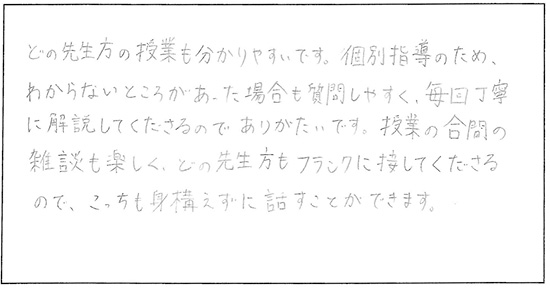 どの先生方の授業も分かりやすいです。個別指導のため、
わからないところがあった場合も質問しやすく、毎回丁寧
に解説してくださるのでありがたいです。授業の合間の
雑談も楽しく、どの先生方もフランクに接してくださる
ので、こっちも身構えずに話すことができます。